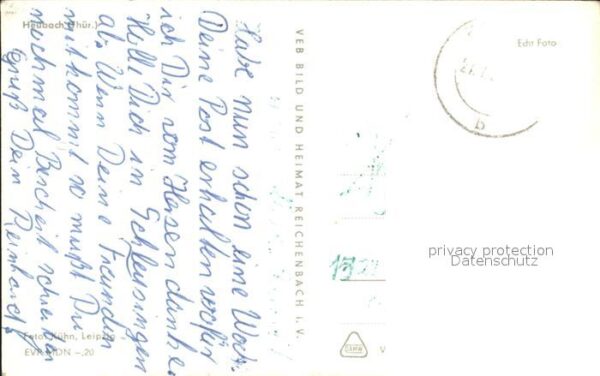 Heubach (Thür.)
Habe nun schon eine Woch.
Deine Post erhalten wofür
ich Dir vom Herzen danke
Hole Dich in Schleusingen
ab. Wenn Deine Freundin
mitkommt so mußt Du
nochmal Bescheit schreiben
Gruß Dein Reinhardt
Foto: Kühn, Leipzig
EVP MDN -,20
VEB BILD UND HEIMAT REICHENBACH I. V.
Echt Foto
b
privacy protection
Datenschutz
V